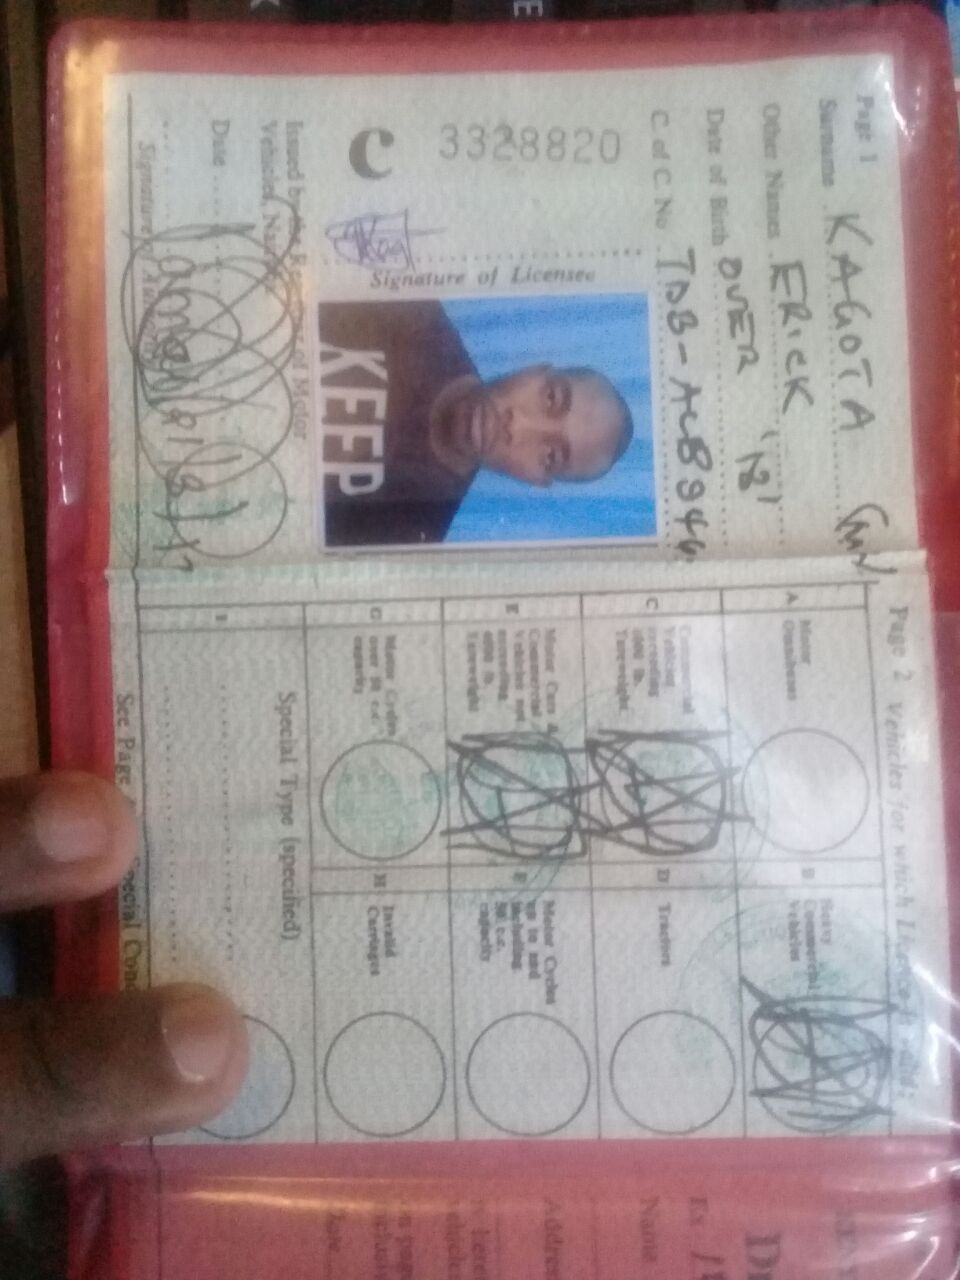 Page 1
Surname KAGOTA
Other Names ERICK
Date of Birth OVER '18'
C. of C. No TDB-
3328820
C
Signature of Licensee
KEEP
Issued by the Registrar of Motor
Vehicles
Date
Signature
Page 2 Vehicles for which Licence
A Motor Omnibuses
B Heavy Commercial Vehicles
C Commercial Vehicles
Tareweight
D Tractors
E Motor Cars
Commercial Vehicles not exceeding
Tareweight
F Motor Cycles up to and including 50 c.c. capacity
G Motor Cycles over 50 c.c. capacity
H Invalid Carriages
I
Special Type (specified)
See Page
Special
Name
Address